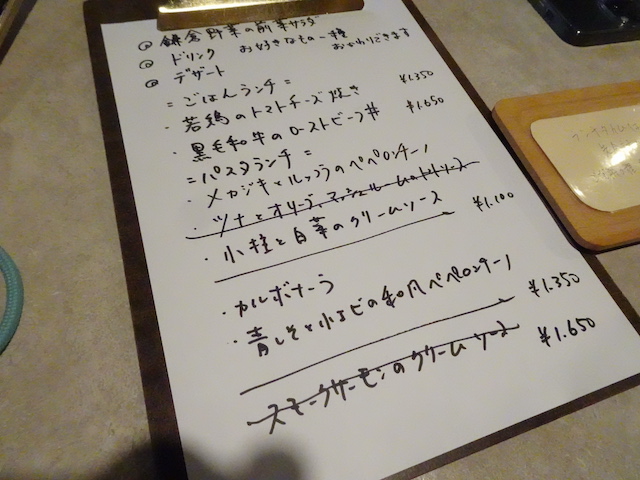 ◎ 鎌倉野菜の前菜サラダ
◎ ドリンク お好きなもの一種 おかわりできます
◎ デザート
= ごはんランチ =
・若鶏のトマトチーズ焼き ¥1.350
・黒毛和牛のローストビーフ丼 ¥1.650
= パスタランチ =
・メカジキとルッコラのペペロンチーノ
・ツナとオリーブ、マッシュルームのトマトソース
・小柱と白菜のクリームソース ¥1.100
・カルボナーラ
・青しそと小エビの和風ペペロンチーノ ¥1.350
・スモークサーモンのクリームソース ¥1.650